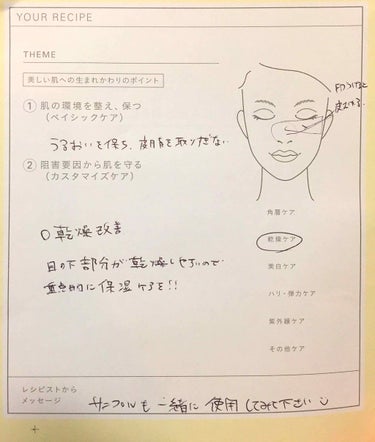 YOUR RECIPE
THEME
美しい肌への生まれかわりのポイント
① 肌の環境を整え、保つ
(ベイシックケア)
うるおいを保ち、皮脂を取りすぎない
② 阻害要因から肌を守る
(カスタマイズケア)
乾燥改善
目の下部分が乾燥しやすいので
重点的に保湿ケアを!!
角層ケア
乾燥ケア
美白ケア
ハリ・弾力ケア
紫外線ケア
その他ケア
レシピストから
メッセージ
サンプルも一緒に使用してみて下さい